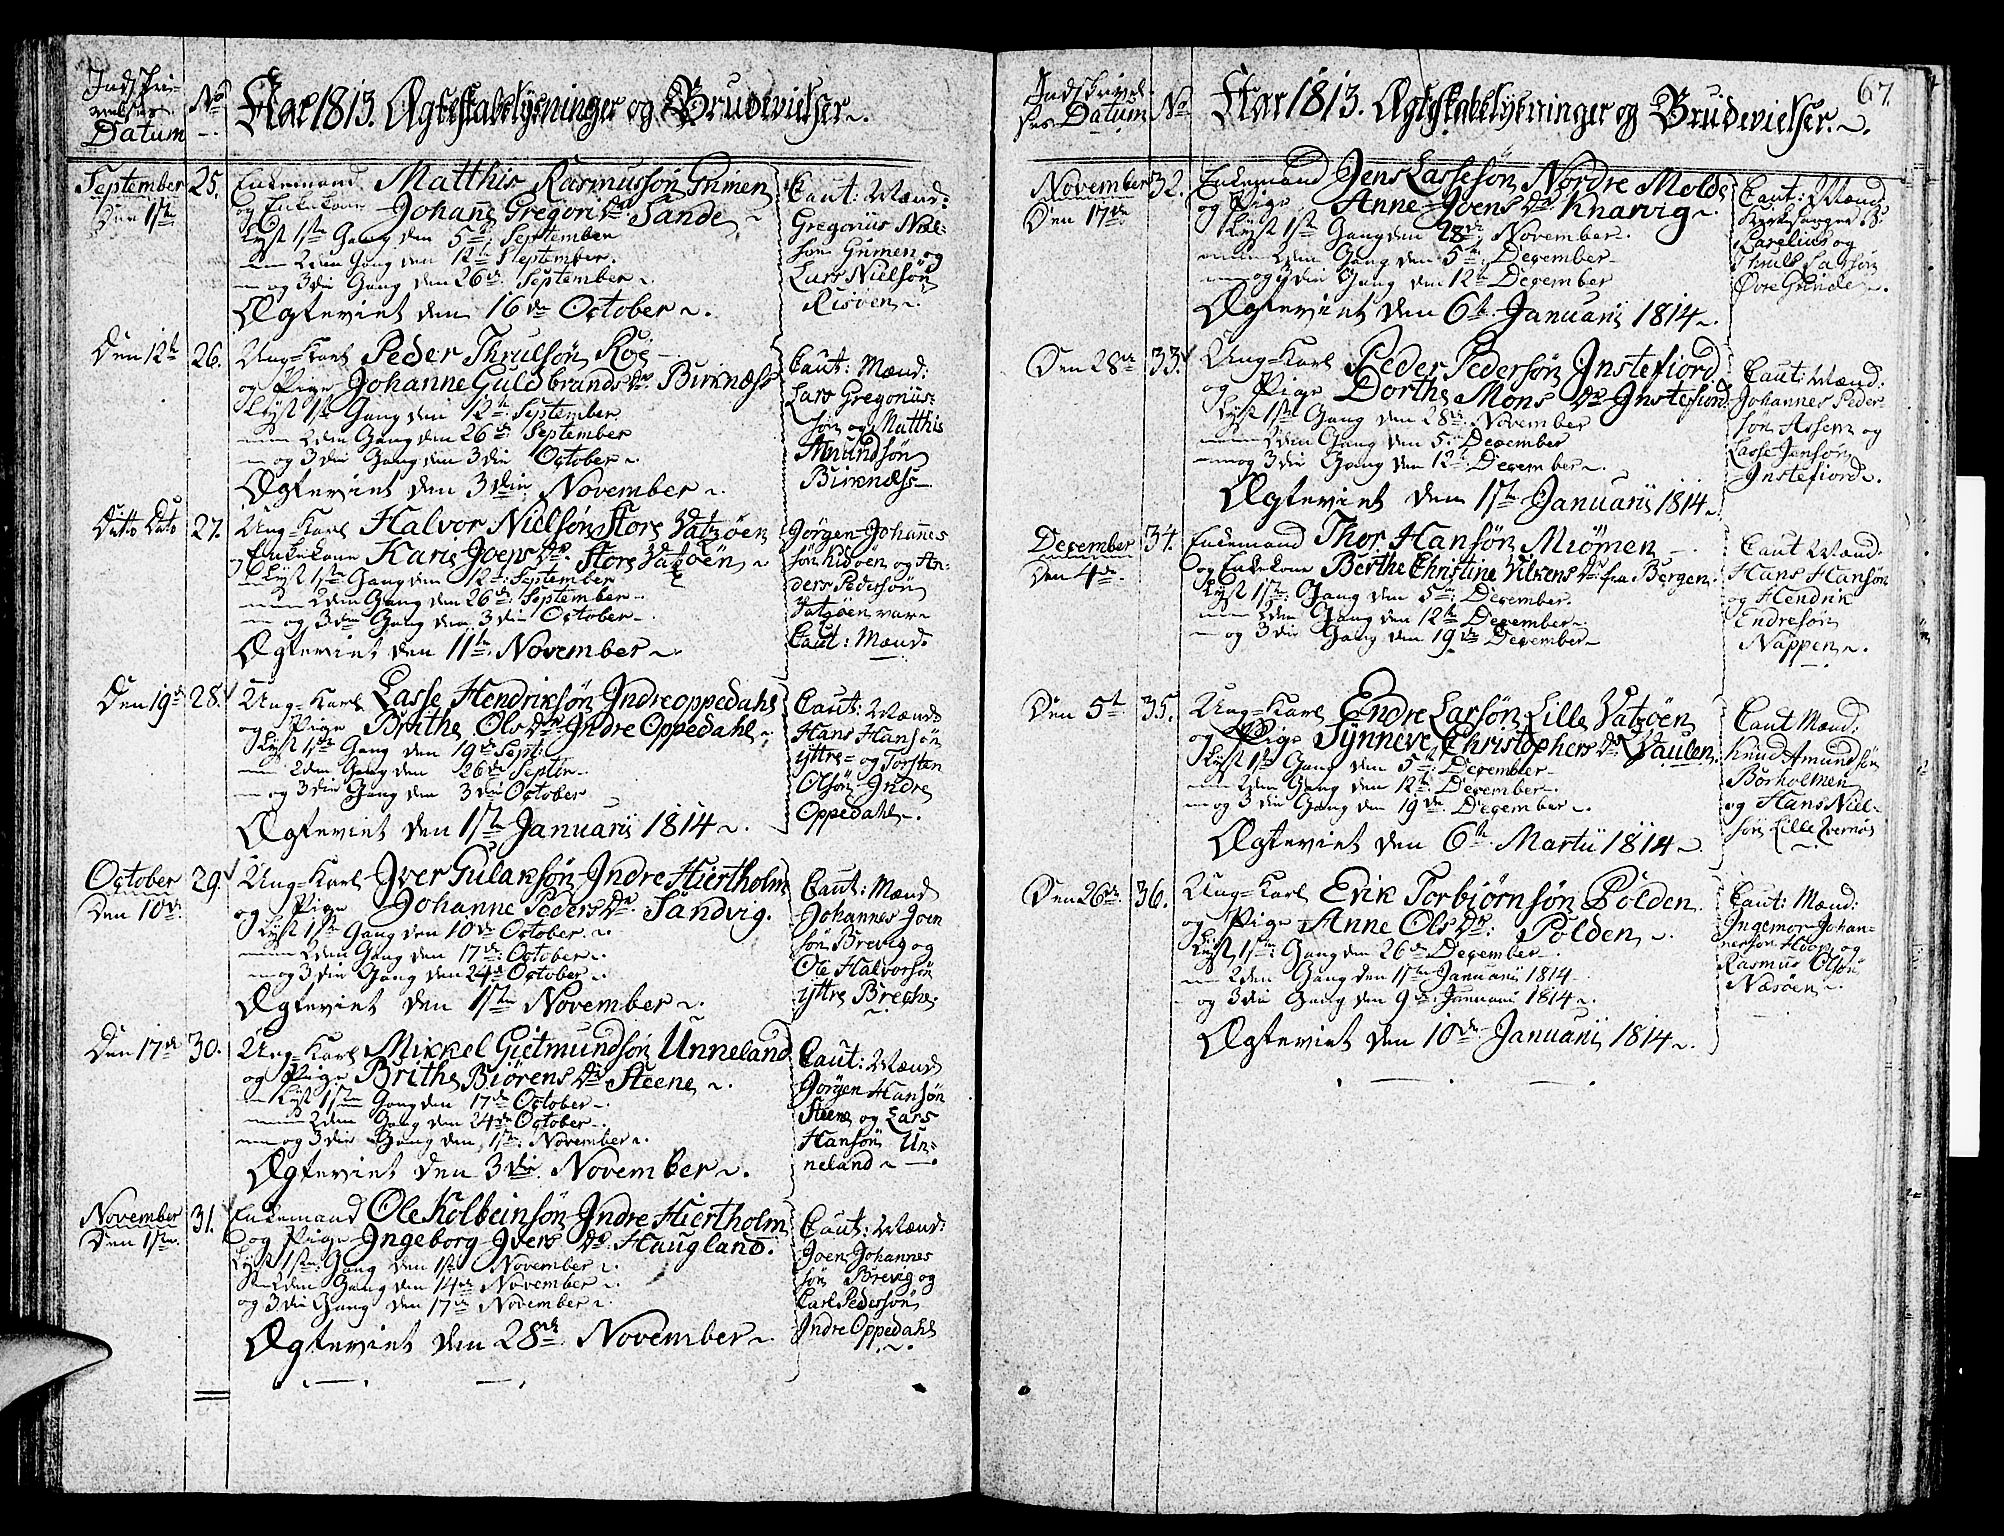 Indskri-
velses
Datum
No
Aar 1813. Ægteskabslysninger og Brudevielser.
September
Den 1ste
25.
Enkemand Matthis Rasmussøn Grimen
og Enkekone Johane Gregoris Dr Sande
Lyst 1ste Gang den 5te September
2den Gang den 12te September.
og 3die Gang den 26de September
Ægteviet den 16de October
Caut: Mænd:
Gregorius Niel-
søn Grimen og
Lars Nielsøn
Risøen
Den 12te
26.
Ung-Karl Peder Thrulsøn Røe
og Pige Johanne Guldbrands Dr Birknæss
Lyst 1ste Gang den 12te September
2den Gang den 26de September
og 3die Gang den 3die October
Ægteviet den 3die November
Caut: Mænd:
Lars Gregorius-
søn og Matthis
Amundsøn
Birknæss
Dito Dato
27.
Ung-Karl Halvor Nielsøn Store Vatzøen
og Enkekone Kari Joens Dr Store Vatzøen
Lyst 1ste Gang den 12te September
2den Gang den 26de September
og 3die Gang den 3die October
Ægteviet den 11te November
Jørgen Johanes
søn Kidøen og An-
ders Pedersøn
Vatzøen vare
Caut: Mænd.
Den 19de
28.
Ung-Karl Lasse Hendriksøn Indreoppedahl
og Pige Brithe Ols Dr Indre Oppedahl
Lyst 1ste Gang den 19de Sept:
2den Gang den 26de Septbr
og 3die Gang den 3die October
Ægteviet den 1ste Januarii 1814
Caut: Mænd:
Hans Hansøn
yttre- og Torsten
Olsøn Indre
Oppedahl
October
Den 10de
29.
Ung-Karl Iver Gulaksøn Indre Hiertholm
og Pige Johanne Peders Dr Sandvig.
Lyst 1ste Gang den 10de October
2den Gang den 17de October
og 3die Gang den 24de October
Ægteviet den 1ste November
Caut: Mænd
Johannes Joen
søn Brevig og
Ole Halvorsøn
yttre Breche
Den 17de
30.
Ung-Karl Mikkel Gietmundsøn Unneland
og Pige Brithe Biørens Dr Steene
Lyst 1ste Gang den 17de October
2den Gang den 24de October
og 3die Gang den 1ste November
Ægteviet den 3die November
Caut: Mænd
Jørgen Hansøn
Steene og Lars
Hansøn Un-
neland
November
Den 1ste
31.
Enkemand Ole Kolbeinsøn Indre Hiertholm
og Pige Ingeborg Ivers Dr Haugland.
Lyst 1ste Gang den 1ste November
2den Gang den 14de November
og 3die Gang den 17de November
Ægteviet den 28de November
Caut: Mænd:
Joen Johannes
søn Brevig og
Carl Pedersøn
Indre Oppedahl
67.
Indskrivel-
ses Datum
No
Aar 1813. Ægteskabslysninger og Brudevielser.
November
Den 17de
32.
Enkemand Jens Lassesøn Nordre Molde
og Pige Anne Joens Dr Knarvig
Lyst 1ste Gang den 28de November
2den Gang den 5te December
og 3die Gang den 12te December
Ægteviet den 6te Januarii 1814
Caut: Mænd
Kirkesanger
Barelius og
Thruls Larsøn
Øvre Grinde
Den 28de
33.
Ung-Karl Peder Pedersøn Instefiord
og Pige Dorthe Mons Dr Instefiord
Lyst 1ste Gang den 28de November
2den Gang den 5te December
og 3die Gang den 12te December
Ægteviet den 1ste Januarii 1814
Caut: Mænd:
Johannes Peder-
søn Assem og
Lasse Jensøn
Instefiord
December
Den 4de
34.
Enkemand Thor Hansøn Miømen
og Enkekone Berthe Christine Vilkens Dr fra Bergen.
Lyst 1ste Gang den 5te December
2den Gang den 12te December
og 3die Gang den 19de December
Caut Mænd:
Hans Hansøn
og Hendrik
Endresøn
Nappen
Den 5te
35.
Ung-Karl Endre Larsøn Lille Vatzøen
og Pige Synneve Christophers Dr Vaulen
Lyst 1ste Gang den 5te December
2den Gang den 12te December
og 3die Gang den 19de December
Ægteviet den 6te Martii 1814
Caut Mænd:
Knud Amundsøn
Borholmen
og Hans Niel-
søn Lille Qvernøe
Den 26de
36.
Ung-Karl Erik Torbiørnsøn Polden
og Pige Anne Ols Dr: Polden
Lyst 1ste Gang den 26de December
2den Gang den 1ste Januarii 1814
og 3die Gang den 9de Januarii 1814
Ægteviet den 10de Januarii 1814
Caut: Mænd:
Ingemor Johan-
nersøn Hoop og
Rasmus Olsøn
Næsøen